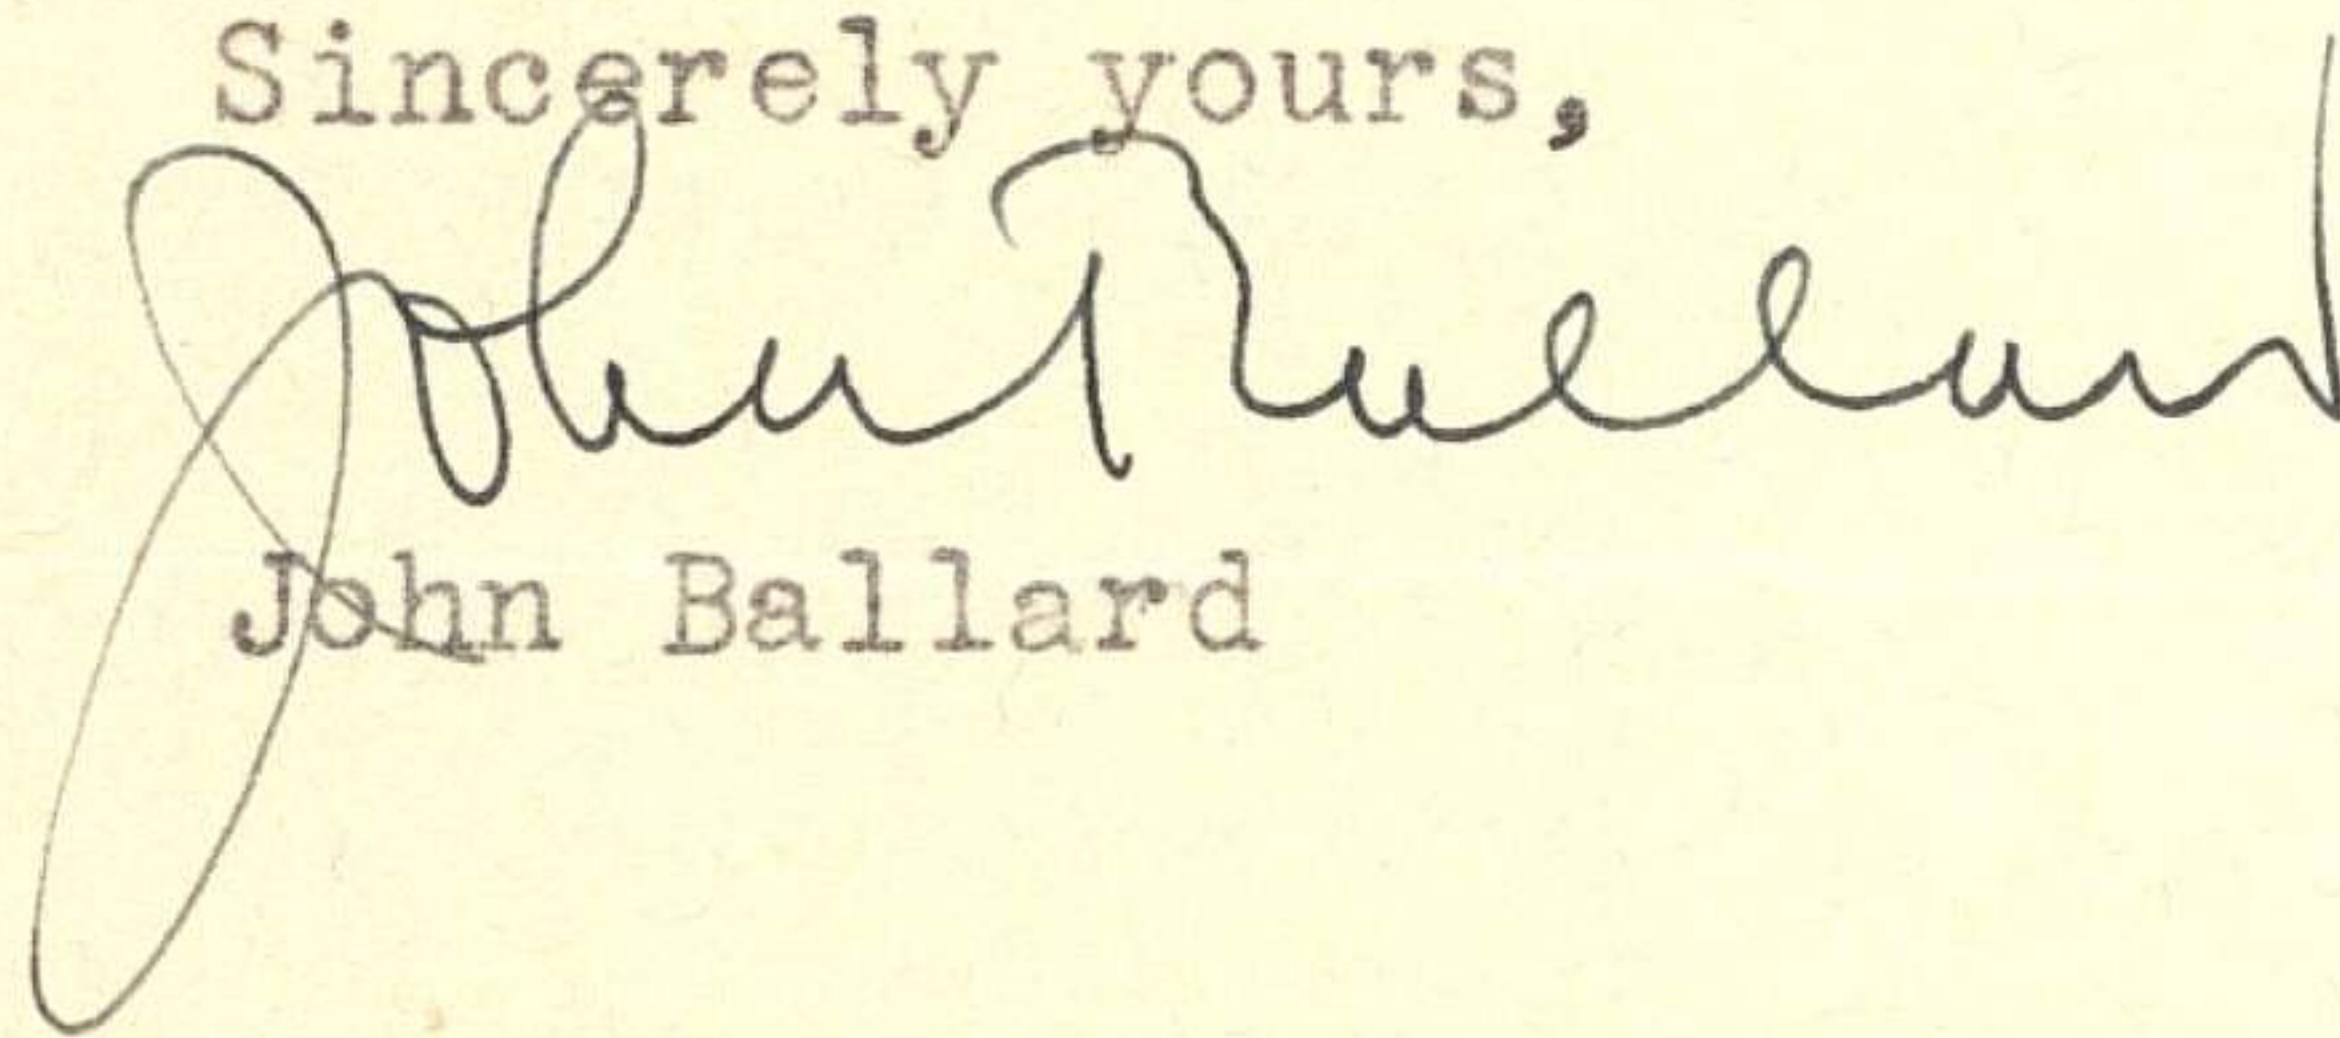 Sincerely yours,
John Ballard
John Ballard